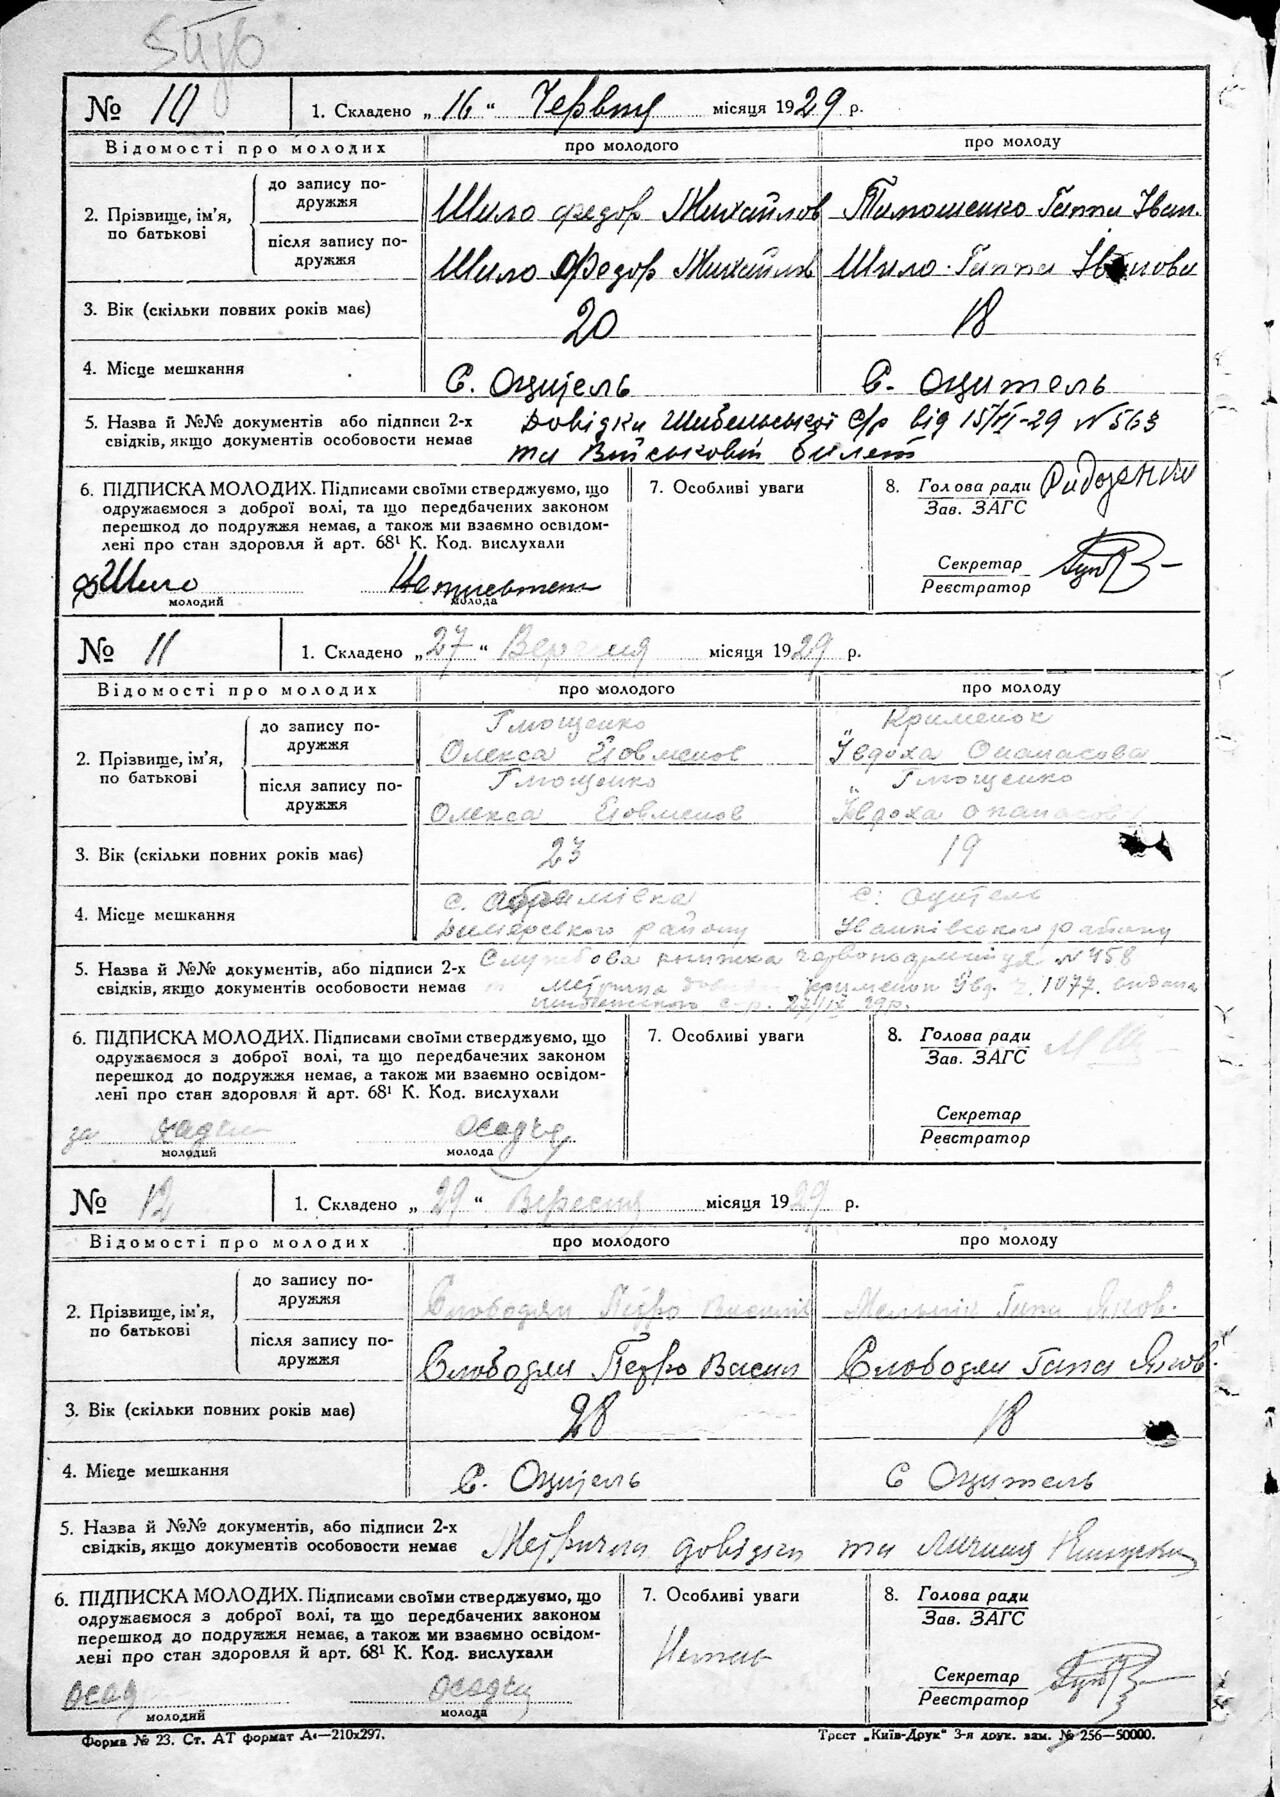 № 10
1. Складено „16“ Червня місяця 1929 р.
Відомості про молодих про молодого про молоду
2. Прізвище, ім'я, по батькові
до запису подружжя
Шило Федор Михайлов Тимошенко Ганна Іван.
після запису подружжя
Шило Федор Михайлов Шило Ганна Іванова
3. Вік (скільки повних років має) 20 18
4. Місце мешкання С. Оцитель С. Оцитель
5. Назва й №№ документів або підписи 2-х Довідки Шибенської С/р від 15/VI-29 №563
свідків, якщо документів особовости немає та Військовій билет
6. ПІДПИСКА МОЛОДИХ. Підписами своїми стверджуємо, що
одружаємося з доброї волі, та що передбачених законом
перешкод до подружжя немає, а також ми взаємно освідом-
лені про стан здоровля й арт. 68¹ К. Код. вислухали
Шило
молодий молода
7. Особливі уваги
8. Голова ради
Зав. ЗАГС
Секретар
Реєстратор
№ 11
1. Складено „27“ Вересня місяця 1929 р.
Відомості про молодих про молодого про молоду
2. Прізвище, ім'я, по батькові
до запису подружжя
Олекса Опанасова
після запису подружжя
Олекса
3. Вік (скільки повних років має) 23 19
4. Місце мешкання с. с. Оцитель
Димерського району Іванківського району
5. Назва й №№ документів, або підписи 2-х Службова книжка червоноармійця №458
свідків, якщо документів особовости немає ч. 1077. видана
с-р. 27/IX 29р.
6. ПІДПИСКА МОЛОДИХ. Підписами своїми стверджуємо, що
одружаємося з доброї волі, та що передбачених законом
перешкод до подружжя немає, а також ми взаємно освідом-
лені про стан здоровля й арт. 68¹ К. Код. вислухали
за Осадчий
молодий молода
7. Особливі уваги
8. Голова ради
Зав. ЗАГС
Секретар
Реєстратор
№ 12
1. Складено „29“ Вересня місяця 1929 р.
Відомості про молодих про молодого про молоду
2. Прізвище, ім'я, по батькові
до запису подружжя
Слободян Петро Василів Мельник Гапа Яков.
після запису подружжя
Слободян Петро Васил Слободян Гапа Яков.
3. Вік (скільки повних років має) 28 18
4. Місце мешкання С. Оцитель С Оцитель
5. Назва й №№ документів, або підписи 2-х
свідків, якщо документів особовости немає Метрична довідка та
6. ПІДПИСКА МОЛОДИХ. Підписами своїми стверджуємо, що
одружаємося з доброї волі, та що передбачених законом
перешкод до подружжя немає, а також ми взаємно освідом-
лені про стан здоровля й арт. 68¹ К. Код. вислухали
молодий молода
7. Особливі уваги
Немає
8. Голова ради
Зав. ЗАГС
Секретар
Реєстратор
Форма № 23. Ст. АТ формат А₄—210х297. Трест „Київ-Друк“ 3-я друк. зам. № 256—50000.